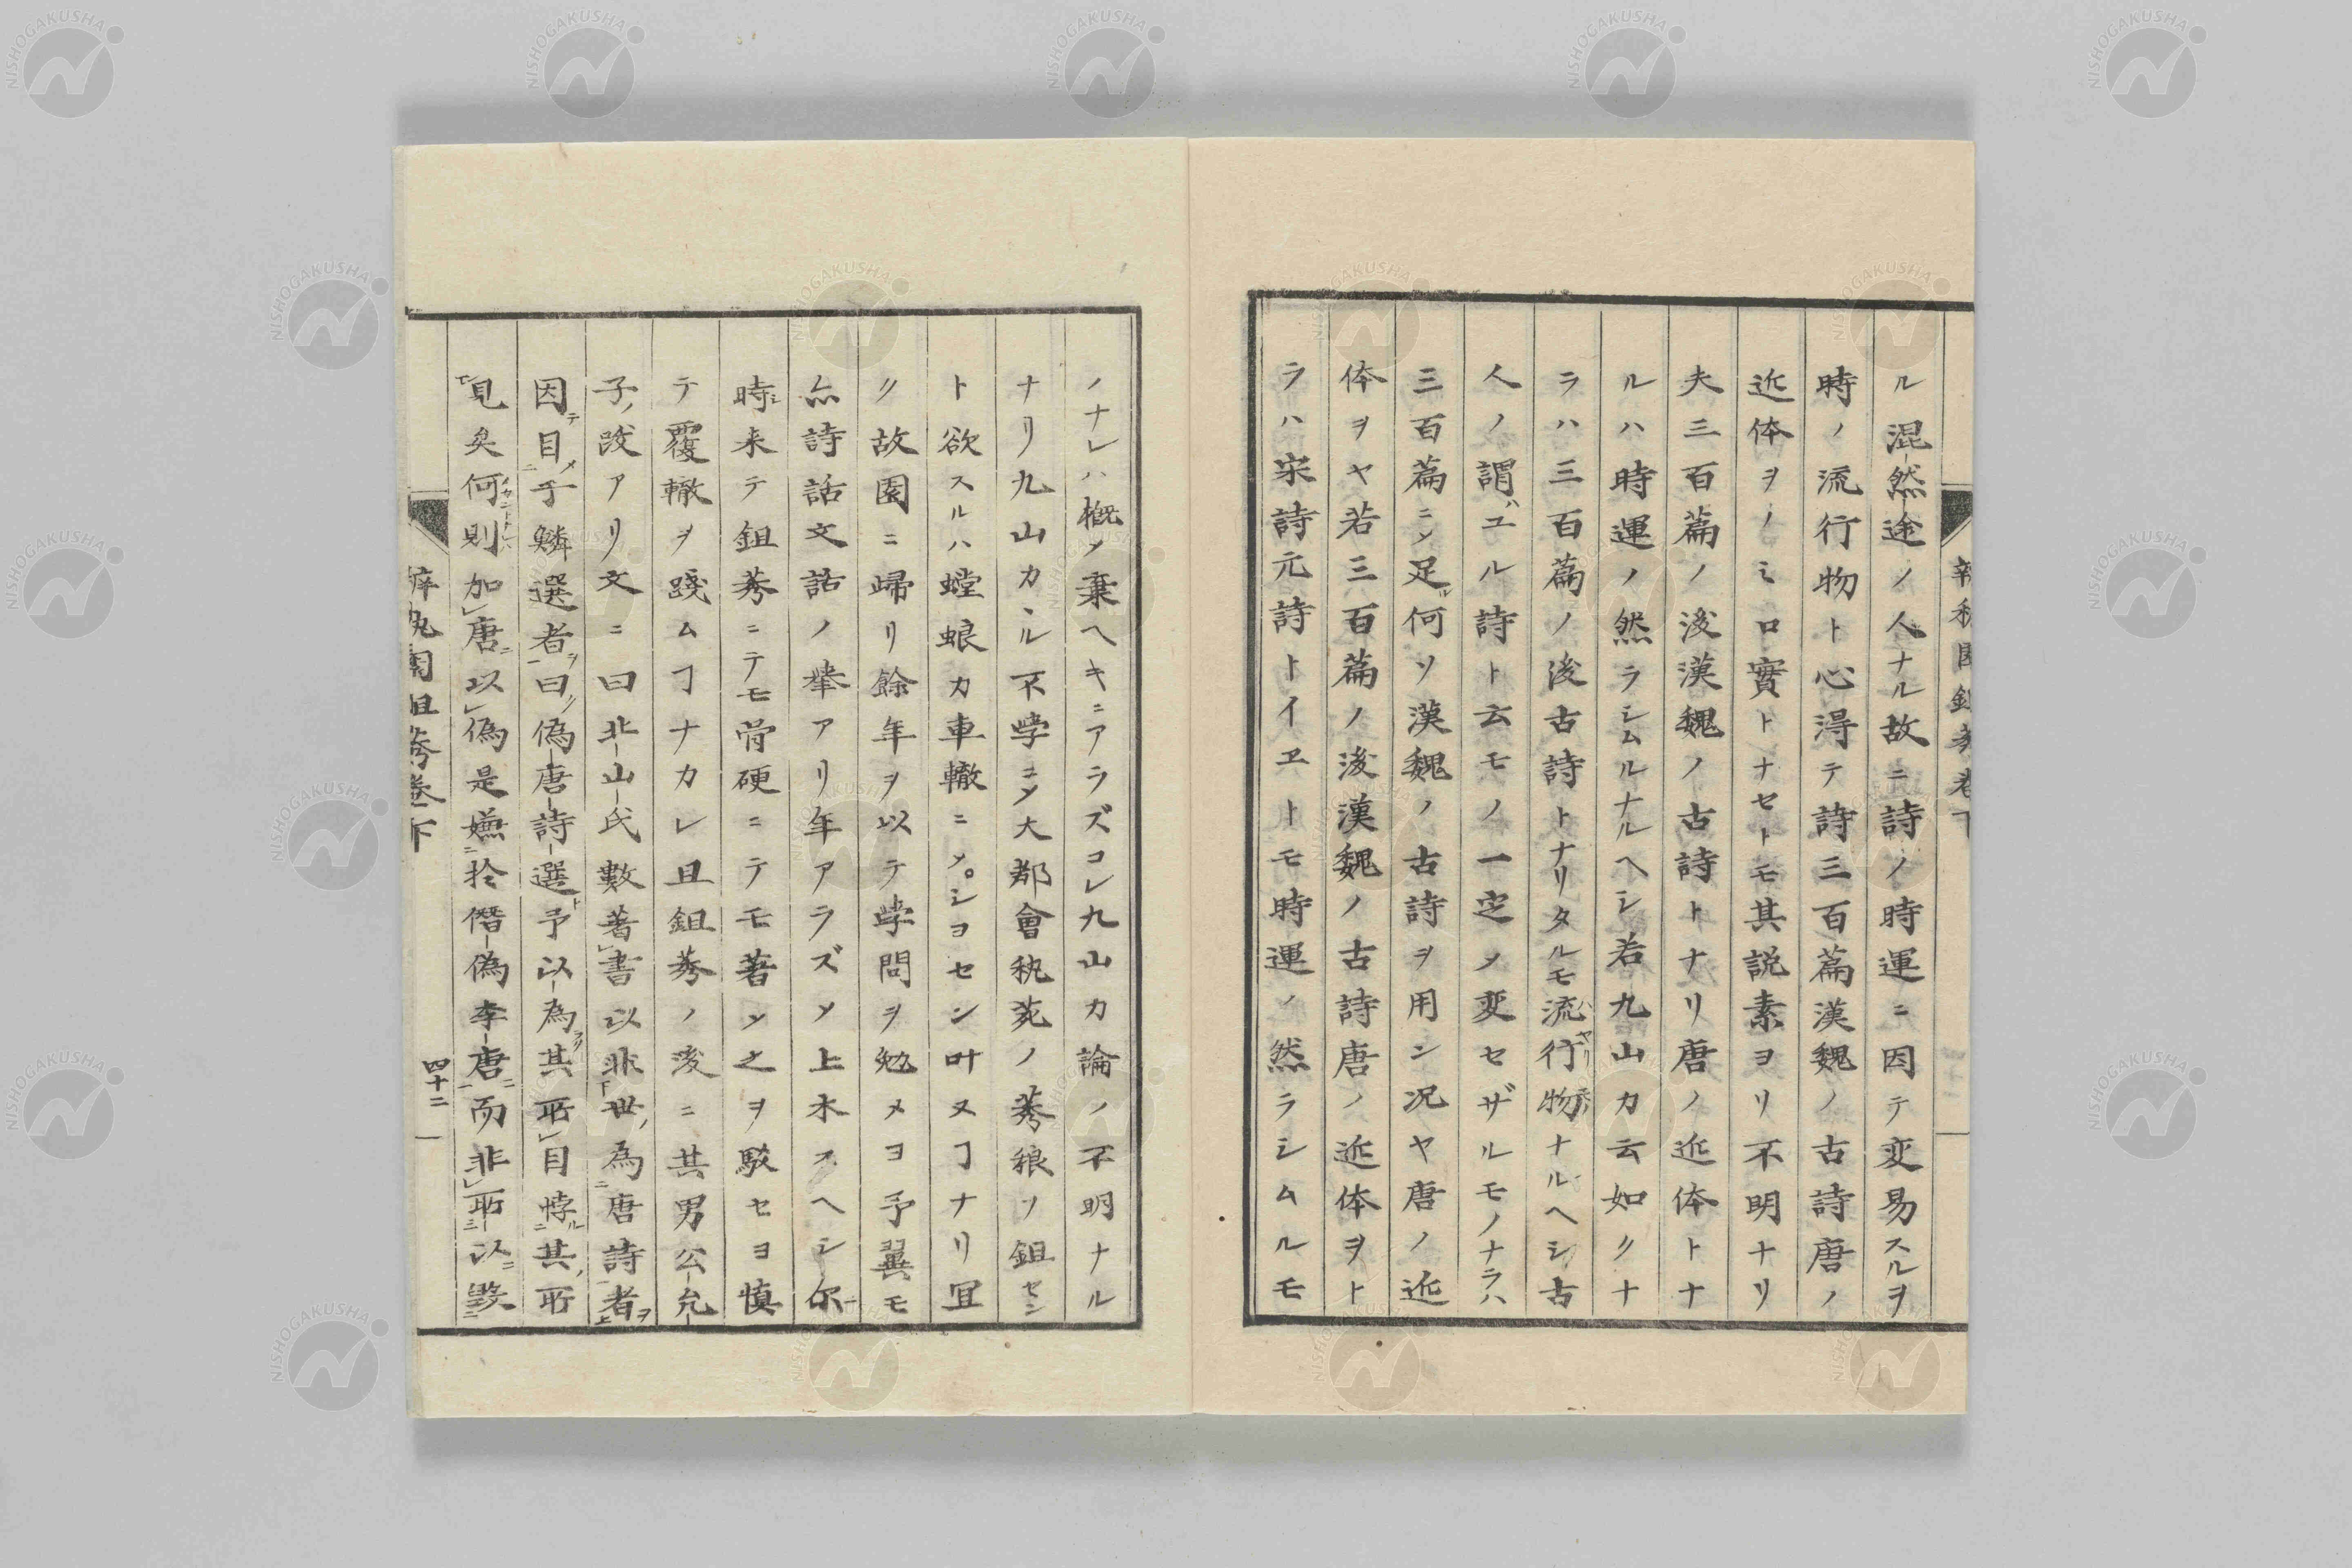 ル混然途ノ人ナル故ニ詩ノ時運ニ因テ変易スルヲ
時ノ流行物ト心淂テ詩三百篇漢魏ノ古詩唐ノ
近体ヲノミロ實トナセトモ其説素ヨリ不明ナリ
夫三百篇ノ後漢魏ノ古詩トナリ唐ノ近体トナ
ルハ時運ノ然ラシムルナルヘシ若九山カ云如クナ
ラハ三百篇ノ後古詩トナリタルモ流行物ナルヘシ古
人ノ謂ユル詩ト云モノ一定メ変セザルモノナラハ
三百篇ニメ足何ソ漢魏ノ古詩ヲ用ン况ヤ唐ノ近
体ヲヤ若三百篇ノ後漢魏ノ古詩唐ノ近体ヲト
ラハ宋詩元詩トイヱトモ時運ノ然ラシムルモ
ノナレハ概メ棄ヘキニアラズコレ九山カ論ノ不明ナル
ナリ九山カヽル不学ニメ大都會執苑ノ莠稂ヲ鉏セン
ト欲スルハ螳蜋カ車轍ニメ。シヨセン叶ヌヿナリ冝
ク故園ニ歸リ餘年ヲ以テ学問ヲ勉メヨ予翼モ
亦詩話文話ノ挙アリ年アラズメ上木スヘシ尓
時来テ鉏莠ニテモ骨硬ニテモ著メ之ヲ駁セヨ慎
テ覆轍ヲ踐ムヿナカレ且鉏莠ノ後ニ其男公允
子ノ跋アリ文ニ曰北山氏數著書以非世為唐詩者
因目于鱗選者曰偽唐詩選予以為其所目悖其所
見矣何則加唐以偽是嫌於僭偽李唐而非所以毀
四十二